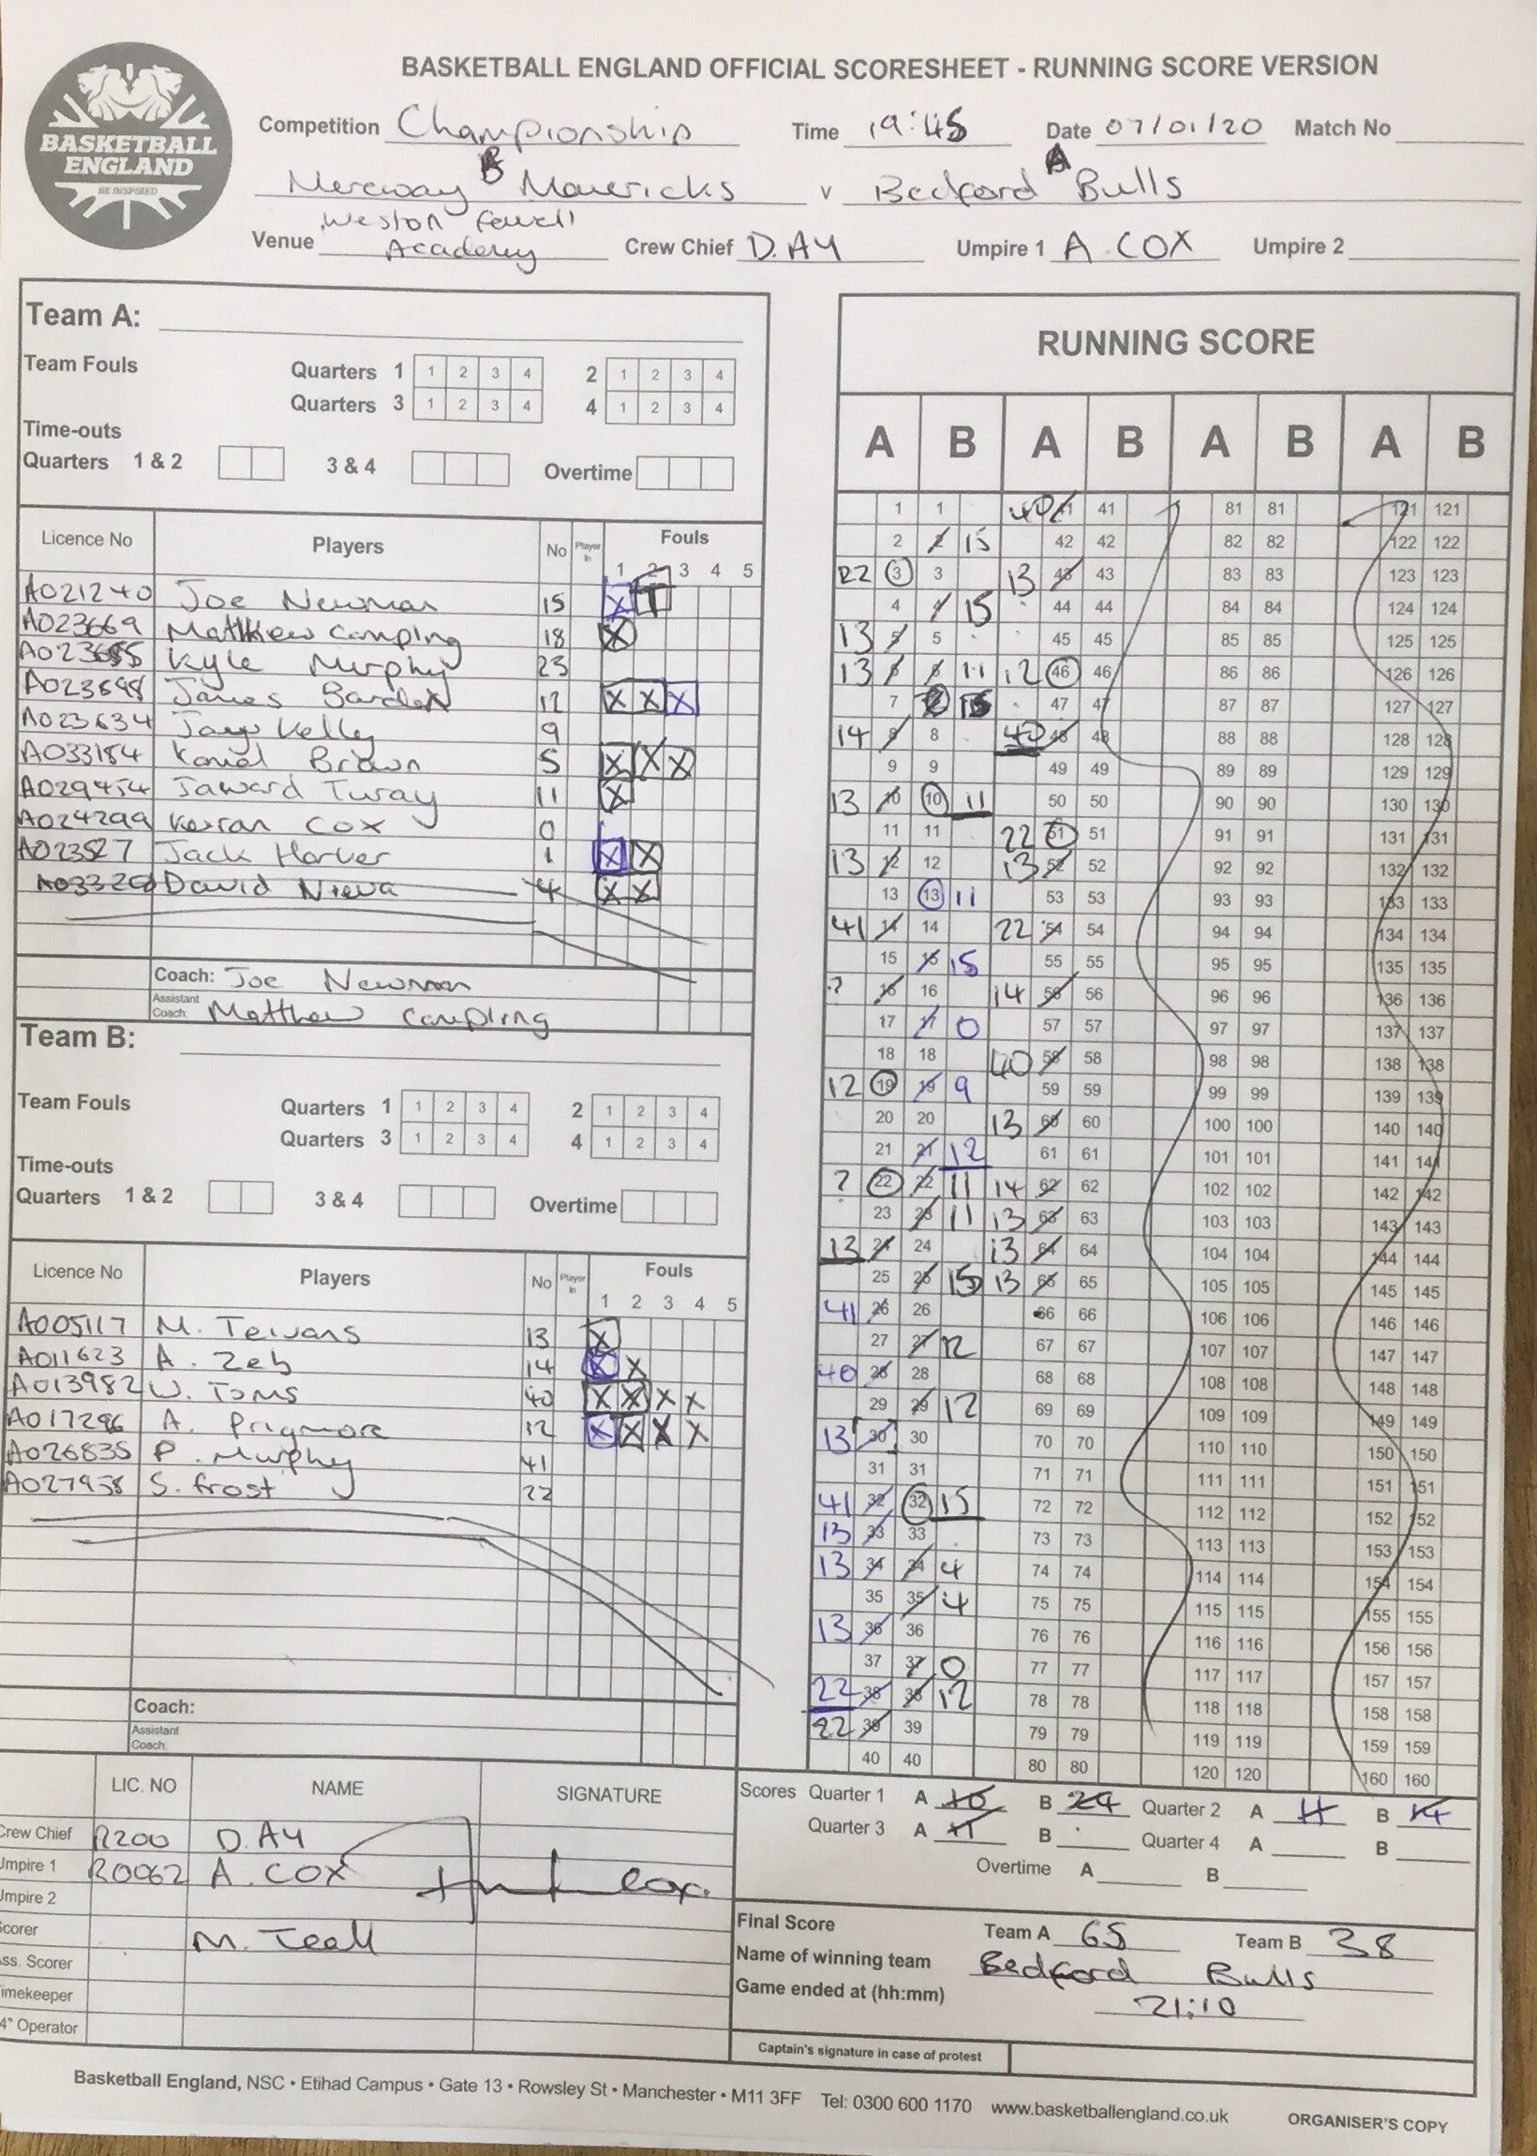 BASKETBALL ENGLAND OFFICIAL SCORESHEET - RUNNING SCORE VERSION
BASKETBALL
ENGLAND
BE INSPIRED
Competition Championship Time 19:45 Date 07/01/20 Match No
B A
Mereway Mavericks v Bedford Bulls
Weston Favell
Venue Academy Crew Chief D. AY Umpire 1 A. COX Umpire 2
Team A:
Team Fouls Quarters 1 1 2 3 4 2 1 2 3 4
Quarters 3 1 2 3 4 4 1 2 3 4
Time-outs
Quarters 1 & 2 3 & 4 Overtime
Licence No Players No Player In Fouls
1 2 3 4 5
A021240 Joe Newman 15 X T
A023669 Matthew Campling 18 X
Kyle Murphy 23
A023648 James 12 X X X
A023634 Jay Kelly 9
A033184 Brown 5 X X X
A029454 Jaward Turay 11 X
A024299 Kieran Cox 0
A023527 Jack Harker 1 X X
David Nieva 4 X X
Coach: Joe Newman
Assistant Coach: Matthew Campling
Team B:
Team Fouls Quarters 1 1 2 3 4 2 1 2 3 4
Quarters 3 1 2 3 4 4 1 2 3 4
Time-outs
Quarters 1 & 2 3 & 4 Overtime
Licence No Players No Player In Fouls
1 2 3 4 5
A005117 M. Teivans 13 X
A011623 A. Zeb 14 X X
A013982 W. Toms 40 X X X X
A017286 A. Prigmore 12 X X X X
A026835 P. Murphy 41
A027938 S. Frost 22
Coach:
Assistant Coach:
LIC. NO NAME SIGNATURE
Crew Chief R200 D. AY
Umpire 1 R0062 A. COX
Umpire 2
Scorer M. Teall
Ass. Scorer
Timekeeper
24" Operator
RUNNING SCORE
A B A B A B A B
1 1 40 41 41 81 81 121 121
2 2 15 42 42 82 82 122 122
22 3 3 13 43 43 83 83 123 123
4 4 15 44 44 84 84 124 124
13 5 5 45 45 85 85 125 125
13 6 6 11 12 46 46 86 86 126 126
7 7 15 47 47 87 87 127 127
14 8 8 40 48 48 88 88 128 128
9 9 49 49 89 89 129 129
13 10 10 11 50 50 90 90 130 130
11 11 22 51 51 91 91 131 131
13 12 12 13 52 52 92 92 132 132
13 13 11 53 53 93 93 133 133
41 14 14 22 54 54 94 94 134 134
15 15 15 55 55 95 95 135 135
? 16 16 14 56 56 96 96 136 136
17 17 0 57 57 97 97 137 137
18 18 40 58 58 98 98 138 138
12 19 19 9 59 59 99 99 139 139
20 20 13 60 60 100 100 140 140
21 21 12 61 61 101 101 141 141
? 22 22 11 14 62 62 102 102 142 142
23 23 11 13 63 63 103 103 143 143
13 24 24 13 64 64 104 104 144 144
25 25 15 13 65 65 105 105 145 145
41 26 26 66 66 106 106 146 146
27 27 12 67 67 107 107 147 147
40 28 28 68 68 108 108 148 148
29 29 12 69 69 109 109 149 149
13 30 30 70 70 110 110 150 150
31 31 71 71 111 111 151 151
41 32 32 15 72 72 112 112 152 152
13 33 33 73 73 113 113 153 153
13 34 34 4 74 74 114 114 154 154
35 35 4 75 75 115 115 155 155
13 36 36 76 76 116 116 156 156
37 37 0 77 77 117 117 157 157
22 38 38 12 78 78 118 118 158 158
22 39 39 79 79 119 119 159 159
40 40 80 80 120 120 160 160
Scores Quarter 1 A 10 B 24 Quarter 2 A 11 B 14
Quarter 3 A 11 B Quarter 4 A B
Overtime A B
Final Score Team A 65 Team B 38
Name of winning team Bedford Bulls
Game ended at (hh:mm) 21:10
Captain's signature in case of protest
Basketball England, NSC • Etihad Campus • Gate 13 • Rowsley St • Manchester • M11 3FF Tel: 0300 600 1170 www.basketballengland.co.uk ORGANISER'S COPY